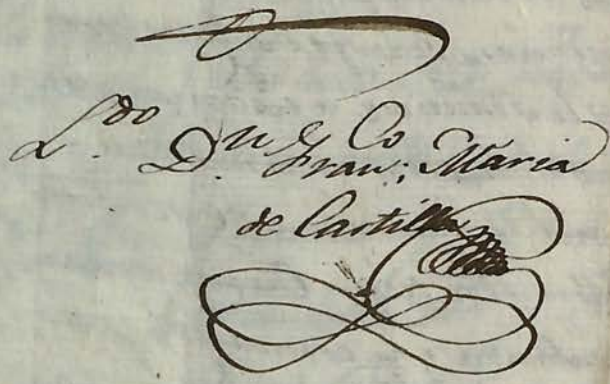 L.do D.n Fran.co Maria
de Castilla